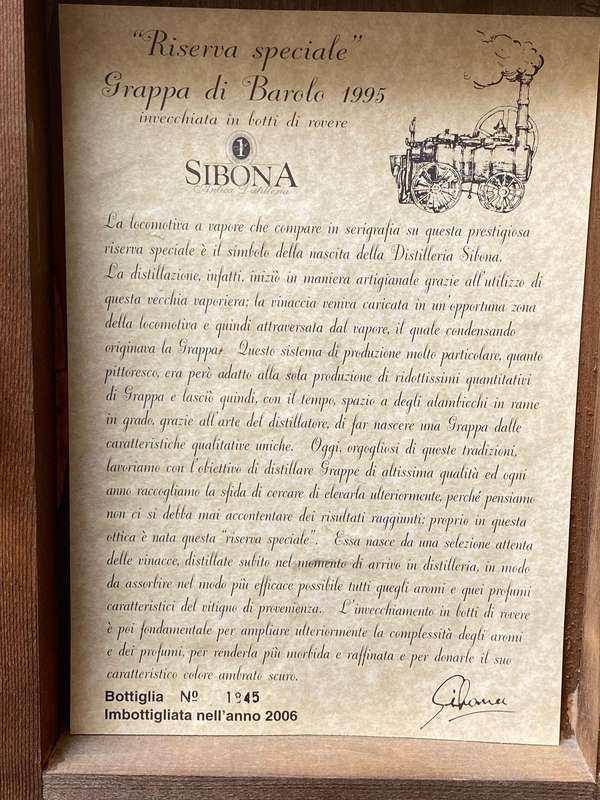 “Riserva speciale”
Grappa di Barolo 1995
invecchiata in botti di rovere
1
SIBONA
Antica Distilleria
La locomotiva a vapore che compare in serigrafia su questa prestigiosa
riserva speciale è il simbolo della nascita della Distilleria Sibona.
La distillazione, infatti, iniziò in maniera artigianale grazie all'utilizzo di
questa vecchia vaporiera; la vinaccia veniva caricata in un'opportuna zona
della locomotiva e quindi attraversata dal vapore, il quale condensando
originava la Grappa. Questo sistema di produzione molto particolare, quanto
pittoresco, era però adatto alla sola produzione di ridottissimi quantitativi
di Grappa e lasciò quindi, con il tempo, spazio a degli alambicchi in rame
in grado, grazie all'arte del distillatore, di far nascere una Grappa dalle
caratteristiche qualitative uniche. Oggi, orgogliosi di queste tradizioni,
lavoriamo con l'obiettivo di distillare Grappe di altissima qualità ed ogni
anno raccogliamo la sfida di cercare di elevarla ulteriormente, perché pensiamo
non ci si debba mai accontentare dei risultati raggiunti; proprio in questa
ottica è nata questa “riserva speciale”. Essa nasce da una selezione attenta
delle vinacce, distillate subito nel momento di arrivo in distilleria, in modo
da assorbire nel modo più efficace possibile tutti quegli aromi e quei profumi
caratteristici del vitigno di provenienza. L'invecchiamento in botti di rovere
è poi fondamentale per ampliare ulteriormente la complessità degli aromi
e dei profumi, per renderla più morbida e raffinata e per donarle il suo
caratteristico colore ambrato scuro.
Bottiglia Nº 1845
Imbottigliata nell'anno 2006
Sibona